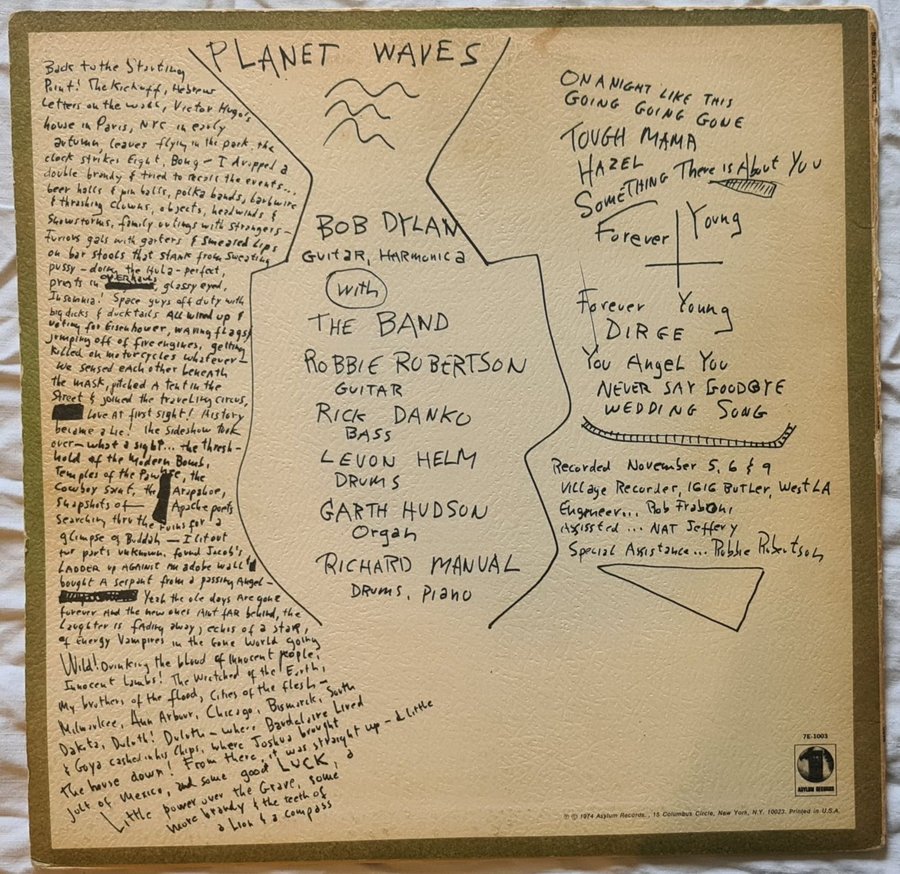 PLANET WAVES
Back to the Starting
Point! The Kickoff, Hebrew
Letters on the wall, Victor Hugo's
house in Paris, NYC in early
autumn, leaves flying in the park, the
clock strikes Eight, Bong - I dropped a
double brandy & tried to recall the events...
beer halls & pin balls, polka bands, barbwire
& thrashing clowns, objects, headwinds &
Snowstorms, family outings with strangers -
Furious gals with garters & smeared Lips
on bar stools that stank from sweating
pussy - doing the Hula - perfect,
priests in OVERhauls, glassy eyed,
Insomnia! Space guys off duty with
big dicks & duck tails All wired up &
voting for Eisenhower, waving flags &
jumping off of fire engines, getting
killed on motorcycles whatever -
We sensed each other beneath
the MASK, pitched A tent in the
Street & joined the traveling circus,
Love At first sight! History
became a Lie! the sideshow took
over - what a sight... the thresh-
hold of the Modern Bomb,
Temples of the Pawnee, the
Cowboy Saint, the Arapahoe,
Snapshots of Apache poets
Searching thru the ruins for a
glimpse of Buddah - I lit out
for parts unknown, found Jacob's
LADDER up AGAINST An adobe wall &
bought A serpent from a passing Angel -
Yeah the ole days Are gone
forever And the new ones Aint fAR behind, the
Laughter is fading away, echos of a star,
of Energy Vampires in the Gone World going
Wild! Drinking the blood of innocent people,
Innocent Lambs! The Wretched of the Earth,
My brothers of the flood, Cities of the flesh -
Milwaukee, Ann Arbour, Chicago, Bismarck, South
Dakota, Duluth! Duluth - where Baudelaire Lived
& Goya cashed in his Chips, where Joshua brought
the house down! From there, it was straight up - a little
jolt of Mexico, and some good LUCK, a
Little power over the Grave, some
more brandy & the teeth of
a Lion & a compass
BOB DYLAN
GUITAR, HARMONICA
with
THE BAND
ROBBIE ROBERTSON
GUITAR
RICK DANKO
BASS
LEVON HELM
DRUMS
GARTH HUDSON
Organ
RICHARD MANUAL
DRUMS, PIANO
ON A NIGHT LIKE THIS
GOING GOING GONE
TOUGH MAMA
HAZEL
SOMETHING There is About You
Forever Young
Forever Young
DIRGE
You Angel You
NEVER SAY GOODBYE
WEDDING SONG
Recorded November 5, 6 & 9
Village Recorder, 1616 BUTLER, West LA
Engineer... Rob Fraboni
Assissted ... NAT Jeffery
Special Assistance... Robbie Robertson
7E-1003
ASYLUM RECORDS
℗ © 1974 Asylum Records, 15 Columbus Circle, New York, N.Y. 10023. Printed in U.S.A.